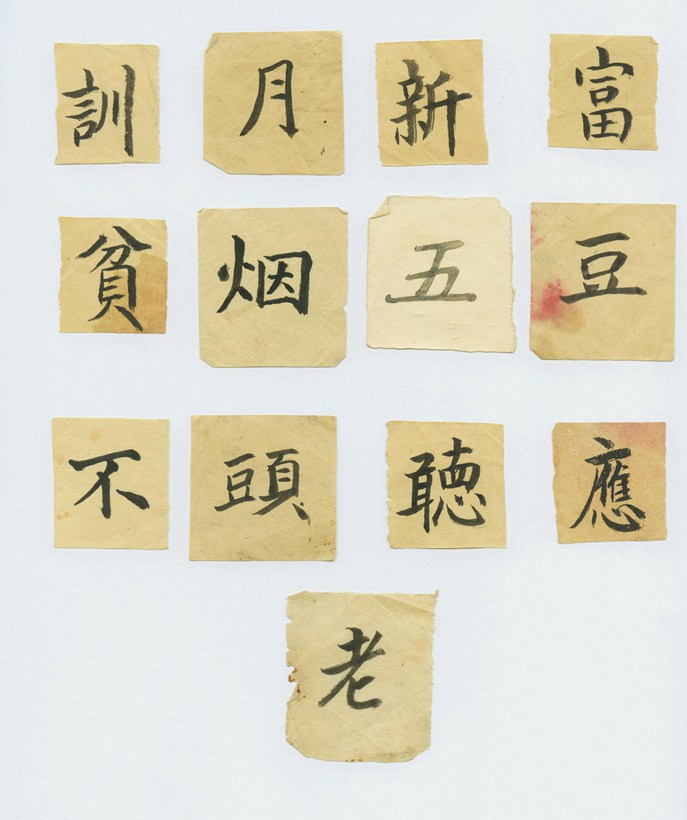 訓 月 新 富
貧 烟 五 豆
不 頭 聴 應
老